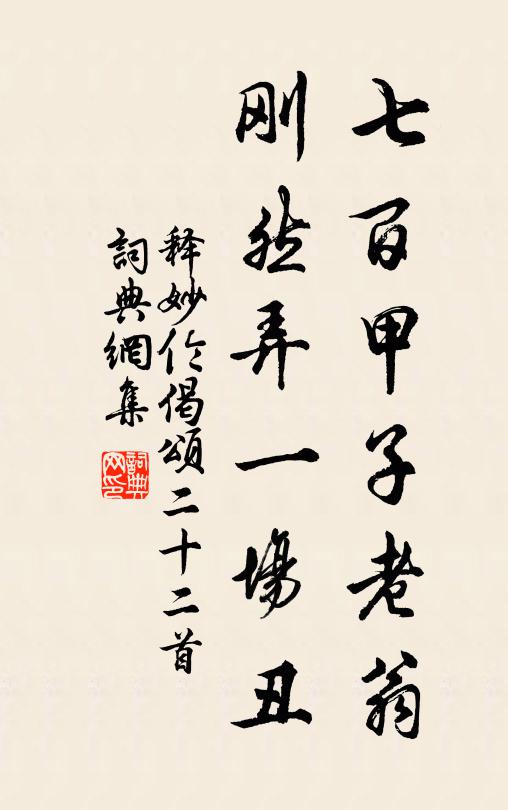 七百甲子老翁
刚然弄一場丑
释妙伦偈頌二十二首
詞典網集
詞典網印